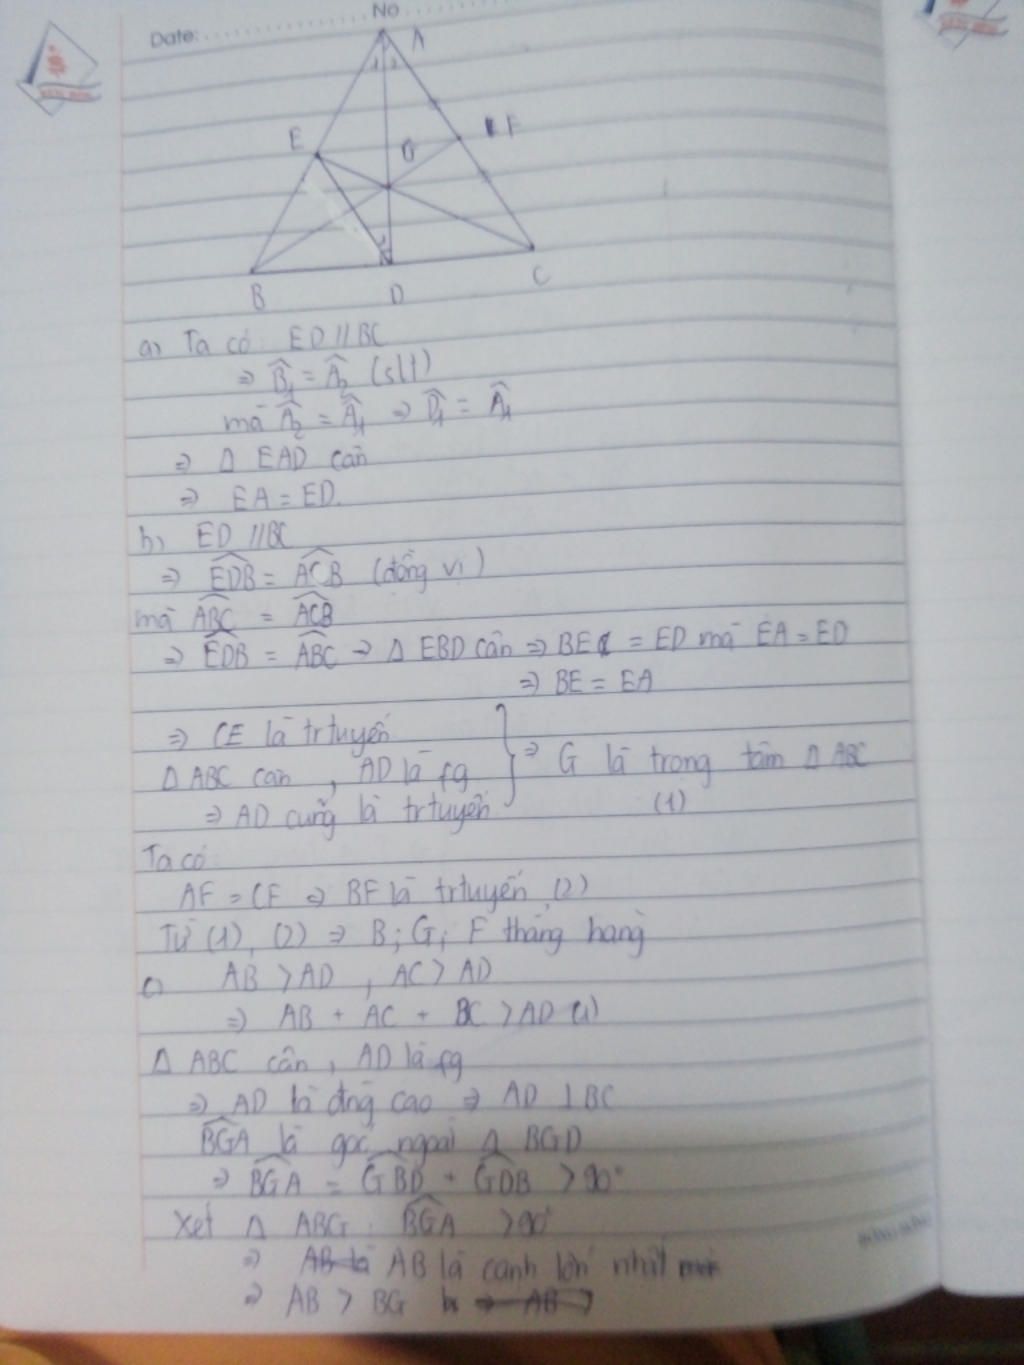 No
Date:
A
E
F
G
B
D
C
a) Ta có: ED // BC
⇒ B̂₁ = Â₂ (slt)
mà Â₂ = Â₁ ⇒ D̂₁ = Â₁
⇒ Δ EAD cân
⇒ EA = ED.
b) ED // BC
⇒ EDB = ACB (đồng vị)
mà ABC = ACB
⇒ EDB = ABC ⇒ Δ EBD cân ⇒ BE = ED mà EA = ED
⇒ BE = EA
⇒ CE là trtuyến
Δ ABC cân, AD là fg } ⇒ G là trọng tâm Δ ABC
⇒ AD cũng là trtuyến (1)
Ta có:
AF = CF ⇒ BF là trtuyến (2)
Từ (1), (2) ⇒ B; G; F thẳng hàng
c) AB > AD, AC > AD
⇒ AB + AC + BC > AD (1)
Δ ABC cân, AD là fg
⇒ AD là đng cao ⇒ AD ⊥ BC
BGA là góc ngoài Δ BGD
⇒ BGA = GBD + GDB > 90°
Xét Δ ABG: BGA > 90°
⇒ AB là AB là cạnh lớn nhất
⇒ AB > BG ⇒ AB >